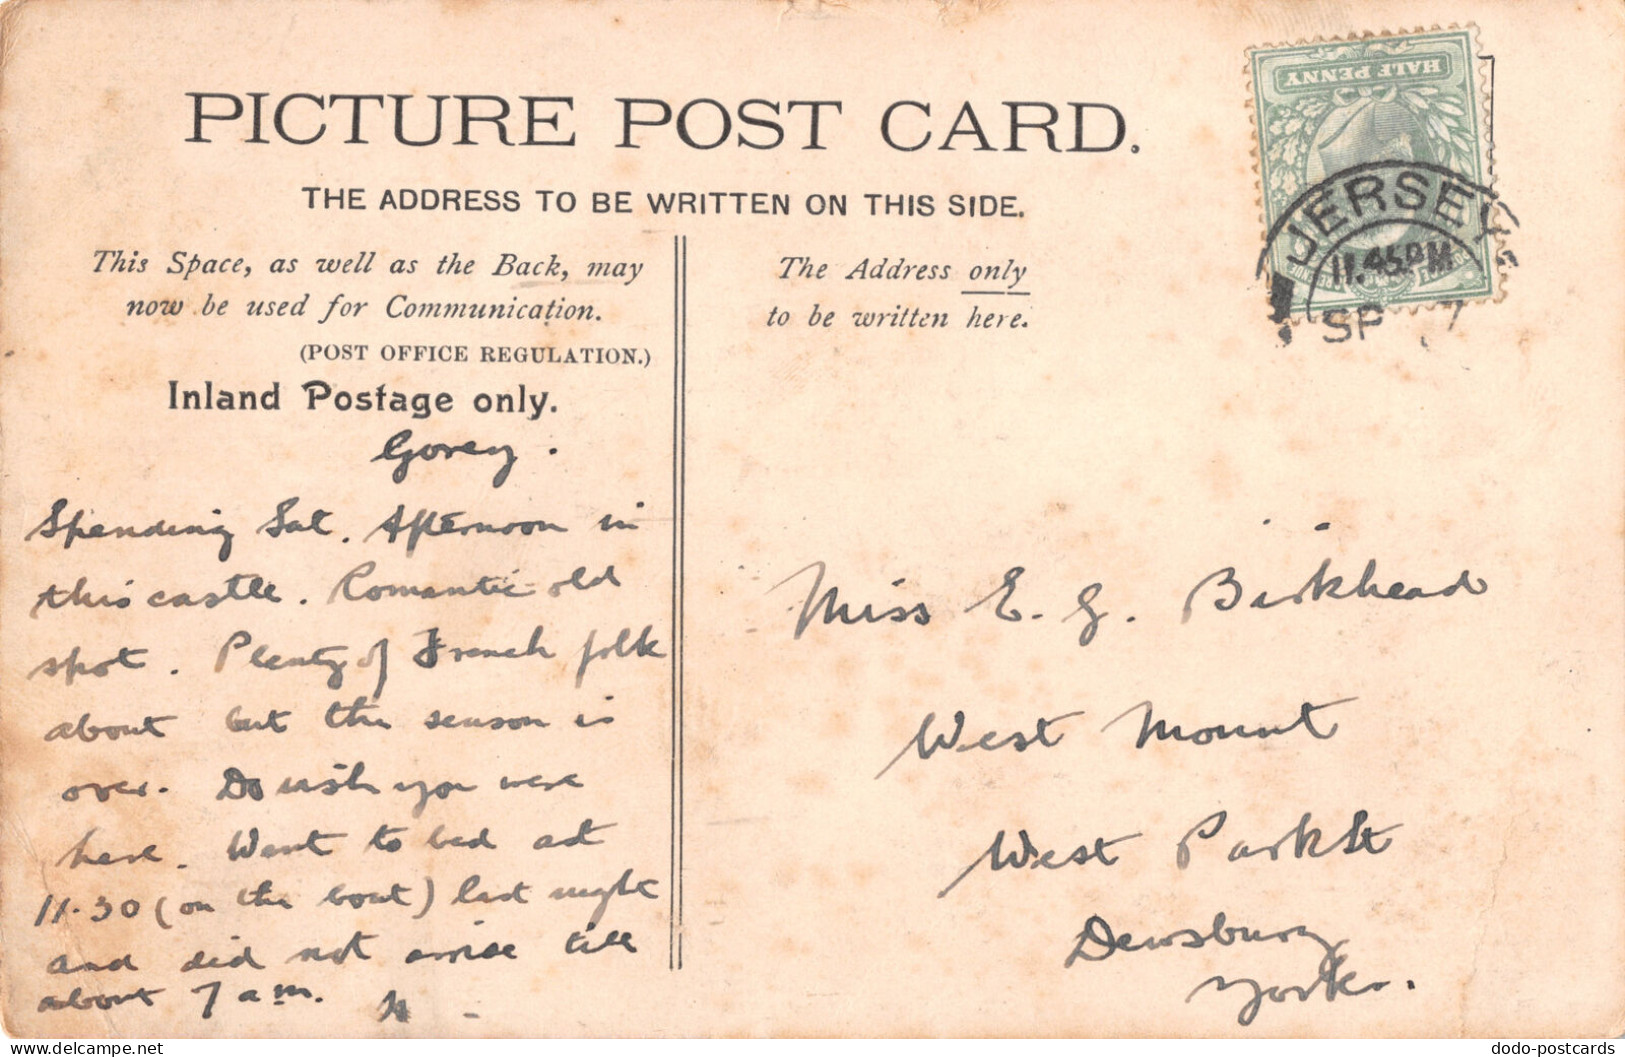 PICTURE POST CARD.
THE ADDRESS TO BE WRITTEN ON THIS SIDE.
This Space, as well as the Back, may
now be used for Communication.
(POST OFFICE REGULATION.)
Inland Postage only.
Gorey.
Spending Sat. Afternoon in
this castle. Romantic old
spot. Plenty of French folk
about but the season is
over. Do wish you were
here. Went to bed at
11.30 (on the boat) last night
and did not arrive till
about 7 am.
The Address only
to be written here.
HALF PENNY
JERSEY
11.45PM
SP 7
Miss E. G. Birkhead
West Mount
West Park St
Dewsbury
Yorks.
dodo-postcards